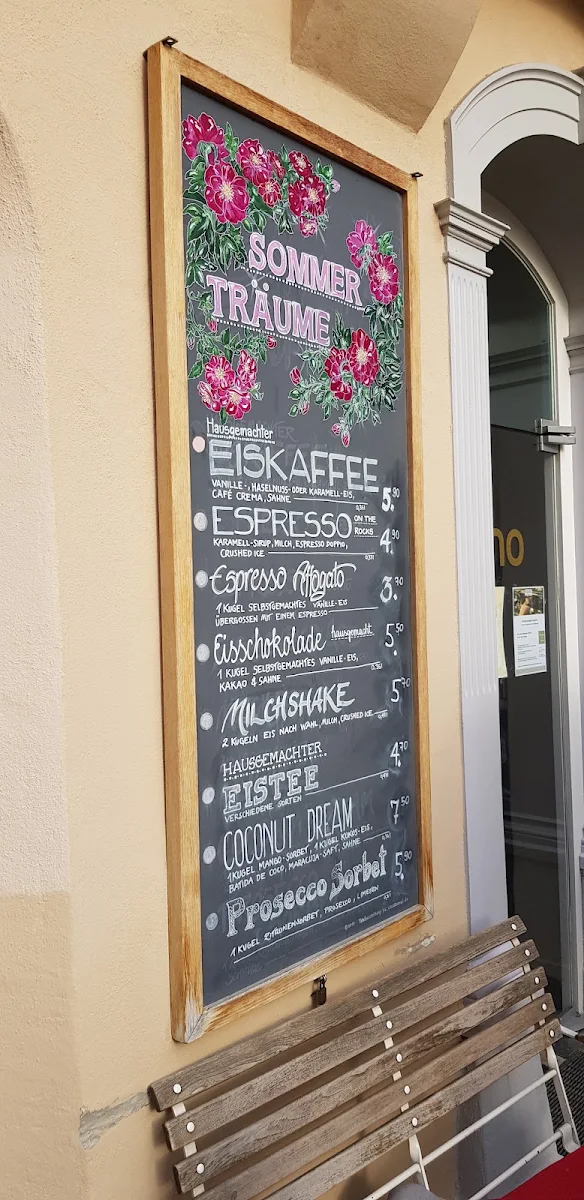 SOMMER
TRÄUME
Hausgemachter
EISKAFFEE
VANILLE-, HASELNUSS- ODER KARAMELL-EIS,
CAFÉ CREMA, SAHNE 5.90
ESPRESSO ON THE
ROCKS
KARAMELL-SIRUP, MILCH, ESPRESSO DOPPIO,
CRUSHED ICE 4.90
Espresso Affogato
1 KUGEL SELBSTGEMACHTES VANILLE-EIS
ÜBERGOSSEN MIT EINEM ESPRESSO 3.70
Eisschokolade hausgemacht
1 KUGEL SELBSTGEMACHTES VANILLE-EIS,
KAKAO & SAHNE 5.50
MILCHSHAKE
2 KUGELN EIS NACH WAHL, MILCH, CRUSHED ICE 5.70
HAUSGEMACHTER
EISTEE
VERSCHIEDENE SORTEN 4.70
COCONUT DREAM
1 KUGEL MANGO-SORBET, 1 KUGEL KOKOS-EIS,
BATIDA DE COCO, MARACUJA-SAFT, SAHNE 7.50
Prosecco Sorbet
1 KUGEL ZITRONENSORBET, PROSECCO, LIMETTEN 5.90
no